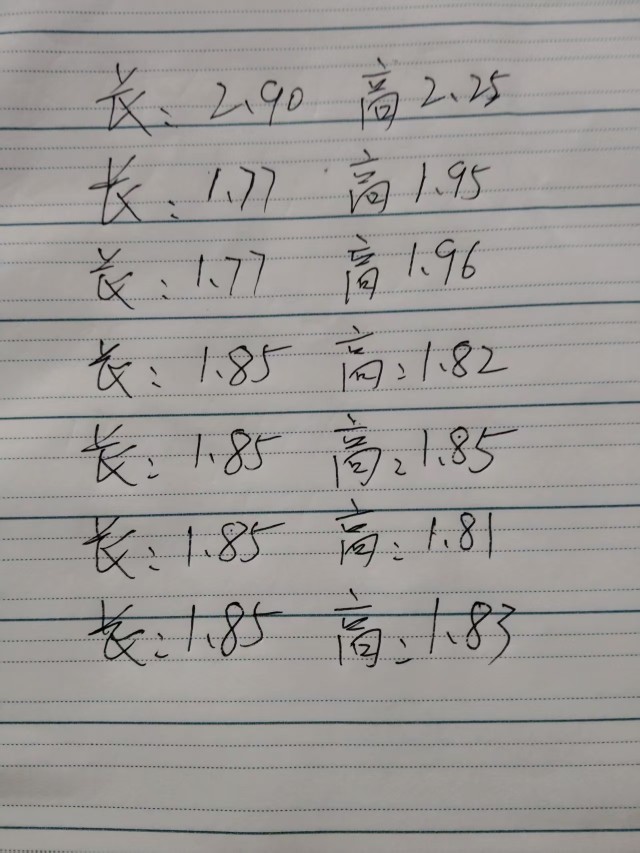 长：2.90 高 2.25
长：1.77 高 1.95
长：1.77 高 1.96
长：1.85 高：1.82
长：1.85 高：1.85
长：1.85 高：1.81
长：1.85 高：1.83